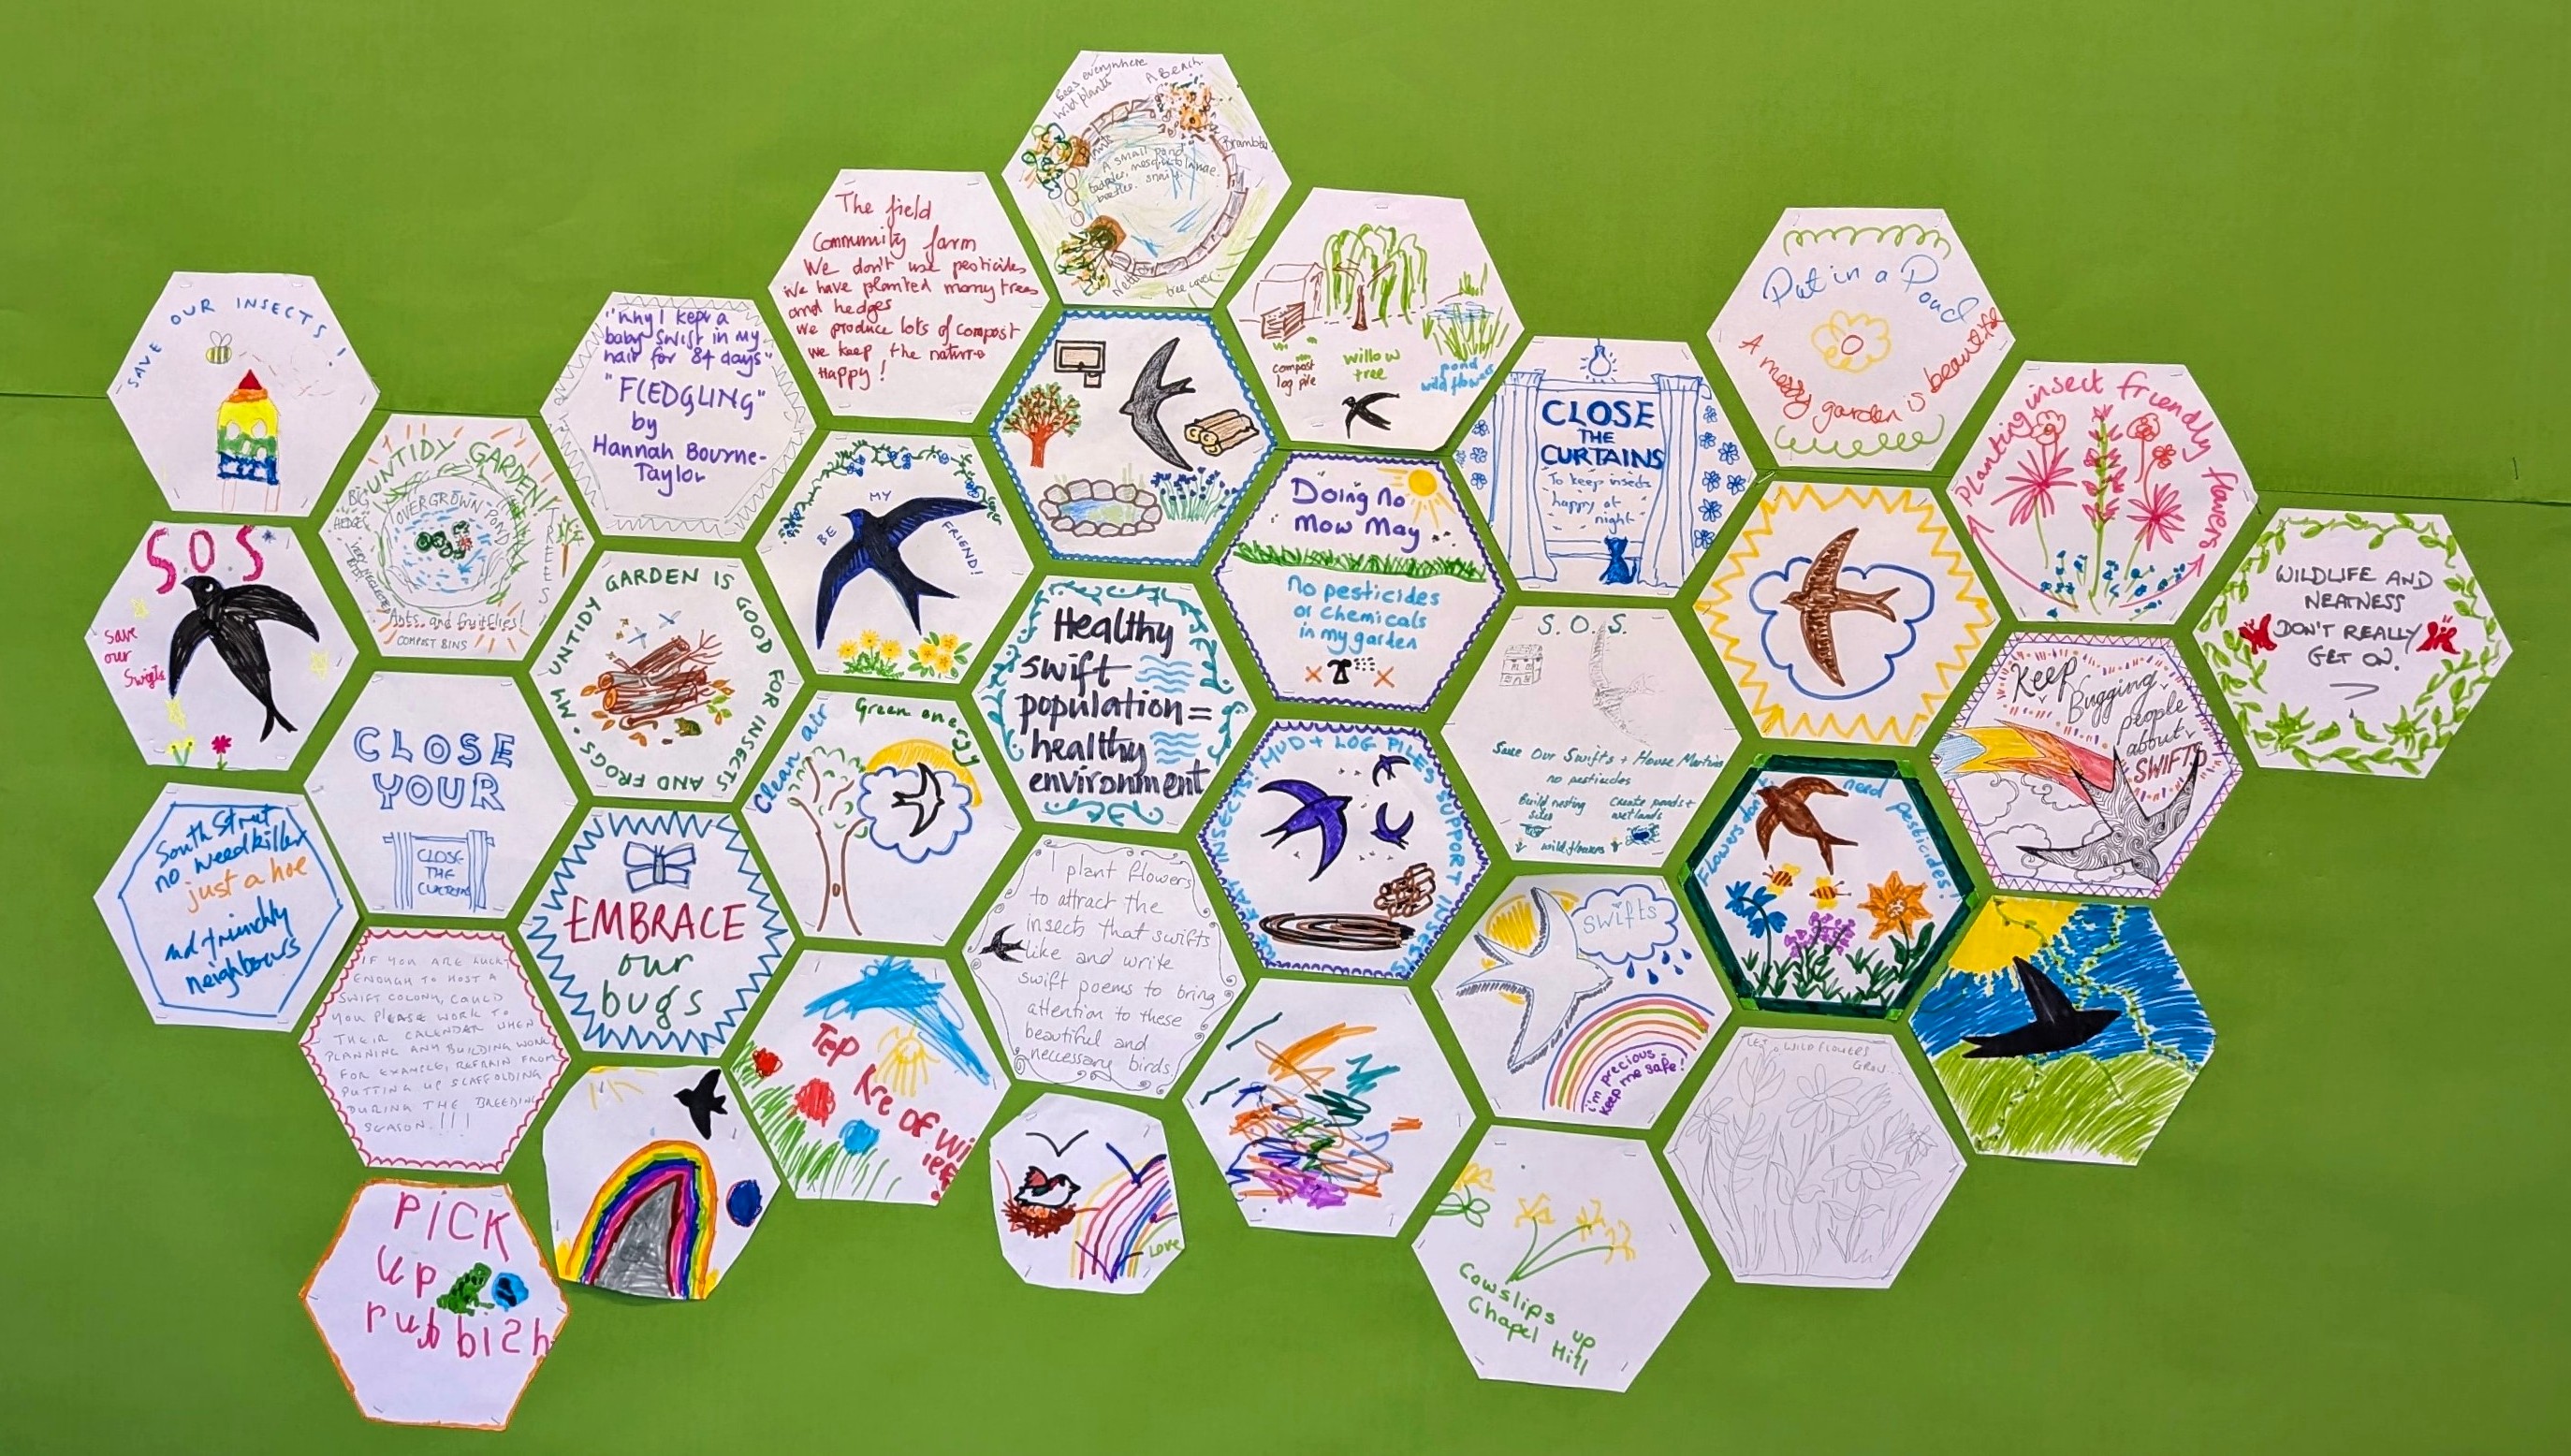 Bees everywhere
Wild plants
A Bench
Brambles
A small pond
tadpoles, mosquito larvae.
beetles. snails.
Nettles
tree cover
The field
Community farm
We don't use pesticides
We have planted many trees
and hedges
We produce lots of compost
we keep the nature
Happy!
compost
log pile
willow
tree
pond
wild flowers
Put in a Pond
A messy garden is beautiful
SAVE OUR INSECTS!
"Why I kept a
baby swift in my
hair for 84 days"
"FLEDGLING"
by
Hannah Bourne-
Taylor
CLOSE
THE
CURTAINS
To keep insects
happy at
night
Planting insect friendly flowers
UNTIDY GARDEN
BIG
HEDGES
OVERGROWN POND
TREES
Ants and fruitflies!
COMPOST BINS
BE MY FRIEND!
Doing No
Mow May
No pesticides
or chemicals
in my garden
WILDLIFE AND
NEATNESS
DON'T REALLY
GET ON.
SOS
save
our
Swifts
MY UNTIDY GARDEN IS GOOD FOR INSECTS AND FROGS.
Healthy
swift
population =
healthy
environment
S.O.S.
Save Our Swifts + House Martins
no pesticides
Build nesting
sites
Create ponds +
wetlands
wild flowers
Keep
Bugging
people
about
SWIFTS
CLOSE
YOUR
CLOSE
THE
CURTAINS
Clean air
Green energy
MUD + LOG PILES SUPPORT INSECTS
EAT INSECTS!
Flowers don't need pesticides!
South Street
no weedkiller
just a hoe
and friendly
neighbours
EMBRACE
our
bugs
I plant flowers
to attract the
insects that swifts
like and write
swift poems to bring
attention to these
beautiful and
neccessary birds.
swifts
i'm precious
keep me safe!
IF YOU ARE LUCKY
ENOUGH TO HOST A
SWIFT COLONY, COULD
YOU PLEASE WORK TO
THEIR CALENDAR WHEN
PLANNING ANY BUILDING WORK
FOR EXAMPLE, REFRAIN FROM
PUTTING UP SCAFFOLDING
DURING THE BREEDING
SEASON!!!
Tep
Kre of wi
lef
LET WILDFLOWERS
GROW...
PiCK
up
rubbish
LOVE
Cowslips up
Chapel Hill